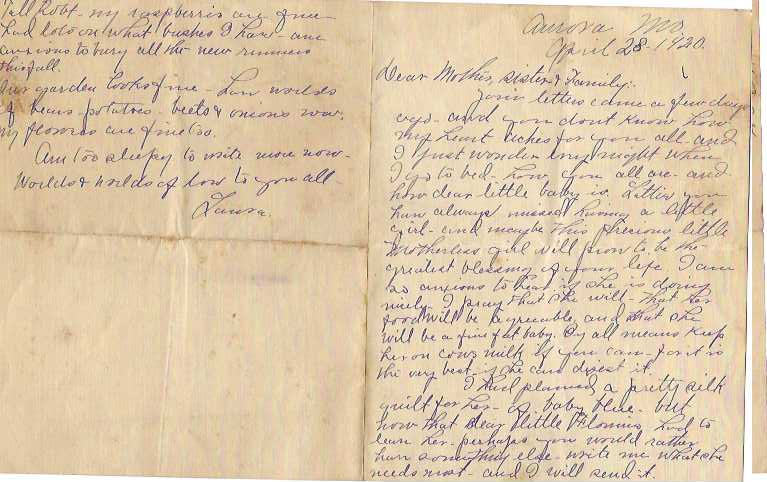 Aurora Mo.
April 28-1920.
Dear Mother, Sister & Family:
Your letters came a few days
ago- and you dont know how
my heart aches for you all- and
I just wonder every night when
I go to bed- how you all are- and
how dear little baby is. you
have always missed having a little
girl- and maybe this precious little
Motherless girl will prove to be the
greatest blessing of your life. I am
so anxious to hear if she is doing
nicely- I pray that she will- that her
food will be agreeable, and that she
will be a fine fat baby. By all means keep
her on cows milk if you can- for it is
the very best- if she can digest it.
I had planned a pretty silk
quilt for her- of baby blue- but
now that dear little had to
leave her- perhaps you would rather
have something else- write me what she
needs most- and I will send it.
Tell Robt- my raspberries are fine
had lots on what bushes I have- am
anxious to bury all the new runners
this fall.
Our garden looks fine- have worlds
of beans- potatoes- beets & onions now.
my flowers are fine too.
Am too sleepy to write more now-
Worlds & worlds of love to you all-
Laura.